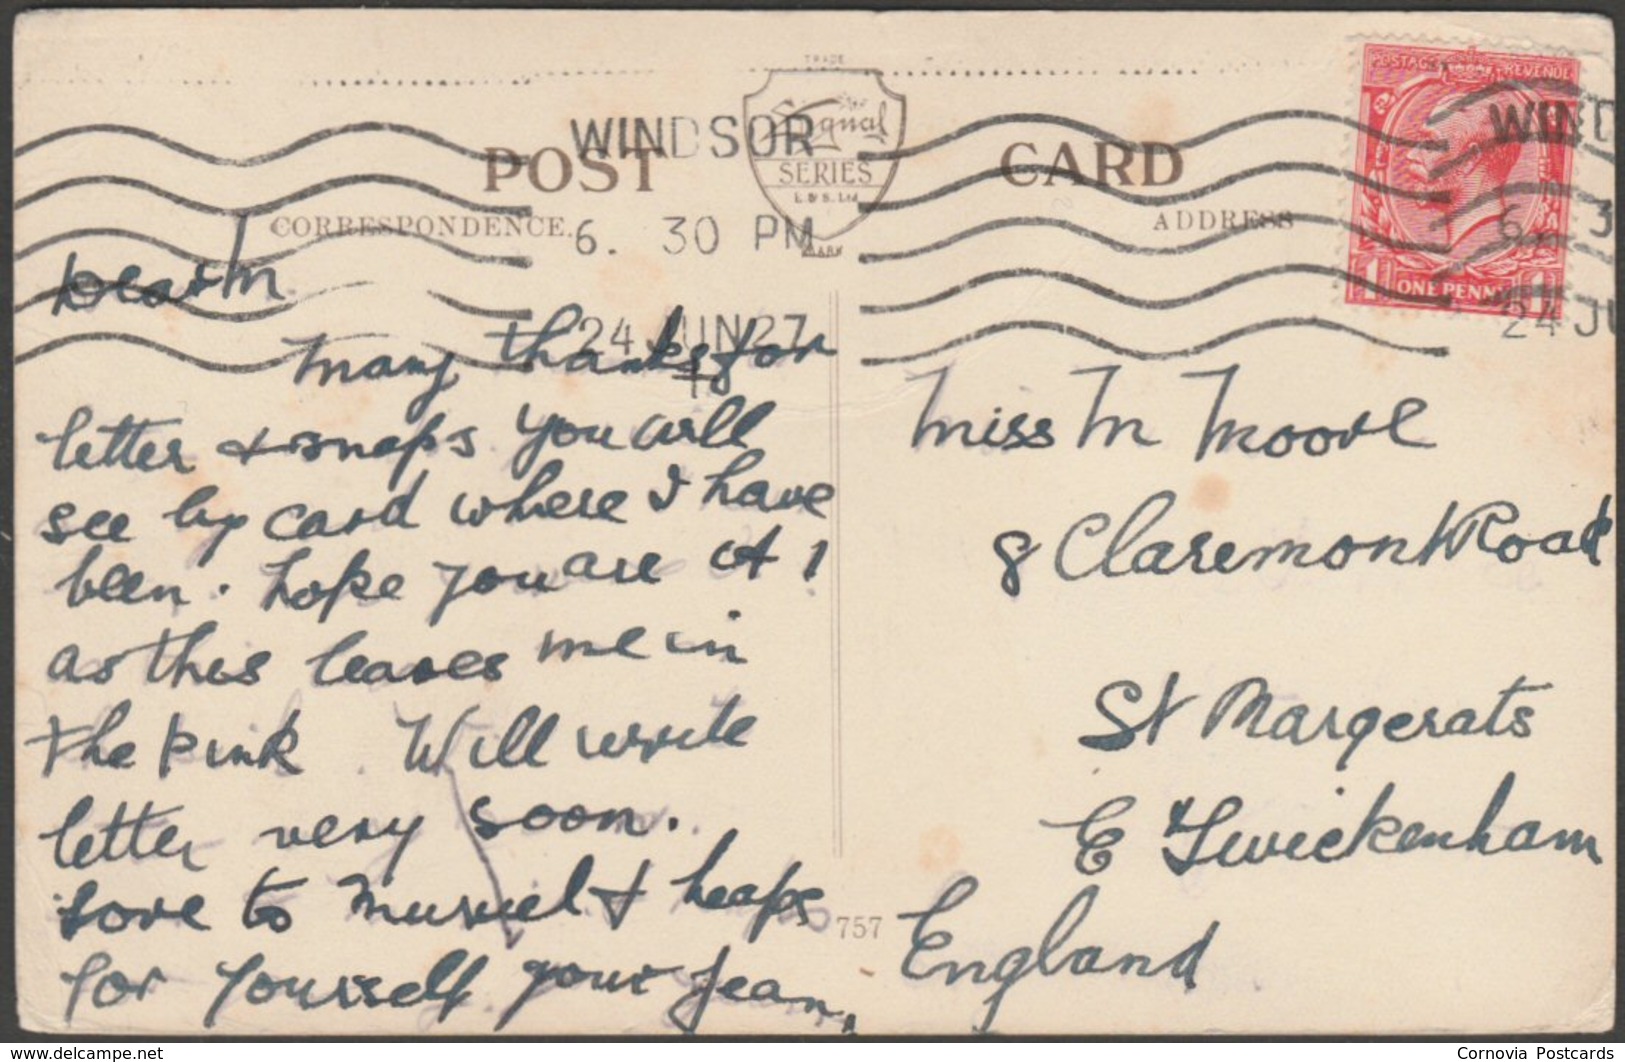 TRADE
Signal
SERIES
E. & S. Ltd
MARK
POST CARD
CORRESPONDENCE.
ADDRESS
WINDSOR
6. 30 PM
24 JUN 27
POSTAGE REVENUE
1 ONE PENNY 1
WIND
6. 3
24 JU
Dear M
Many thanks for
letter & snaps you will
see by card where I have
been. hope you are A 1
as this leaves me in
the pink. Will write
letter very soon.
Love to Muriel & heaps
for yourself your Jean.
757
Miss M Moore
8 Claremont Road
St Margerats
E Twickenham
England
www.delcampe.net
Cornovia Postcards